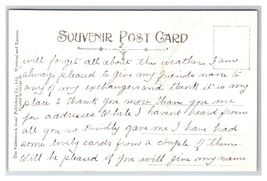 SOUVENIR POST CARD
will forget all about the weather. I am
always pleased to give my friends name to
any of my exchangers and think it is my
place to thank you more than you me
for addresses. While I havent heard from
all you so kindly gave me I have had
some lovely cards from a couple of them.
Will be pleased if you will give my name